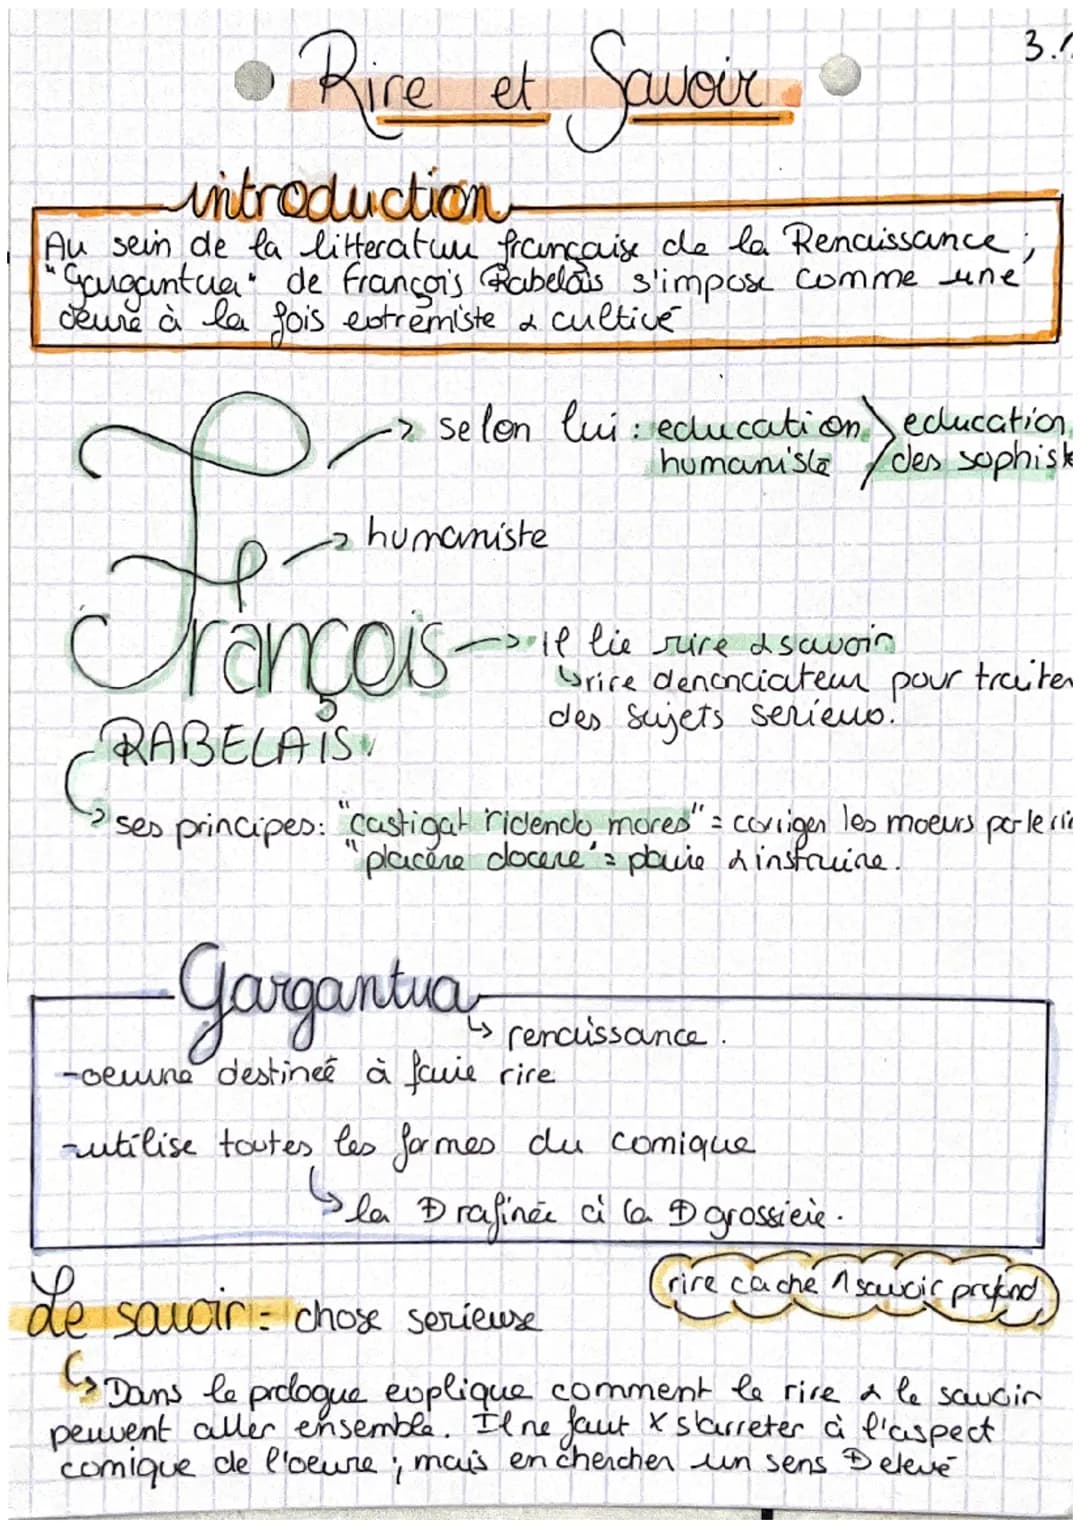 Rire et Savoir
3.
introduction
Au sein de la litterature française de la Renaissance ;
"Gargantua" de François Rabelais s'impose comme une
oeuvre à la fois extrémiste & cultivé
-> selon lui : education > education
humaniste des sophist
-> humaniste
François -> il lie rire & savoir
↳ rire denonciateur pour traiter
des sujets serieux.
RABELAIS
-> ses principes: "castigat ridendo mores" = corriger les moeurs par le ri
"placere docere" = plaire & instruire.
Gargantua
↳ renaissance.
-oeuvre destineé à faire rire
-utilise toutes les formes du comique
↳ la + rafinée à la + grossière.
rire cache 1 savoir profond
Le savoir = chose serieuse
↳ Dans le prologue explique comment le rire & le savoir
peuvent aller ensemble. Il ne faut x s'arreter à l'aspect
comique de l'oeuvre ; mais en chercher un sens + elevé